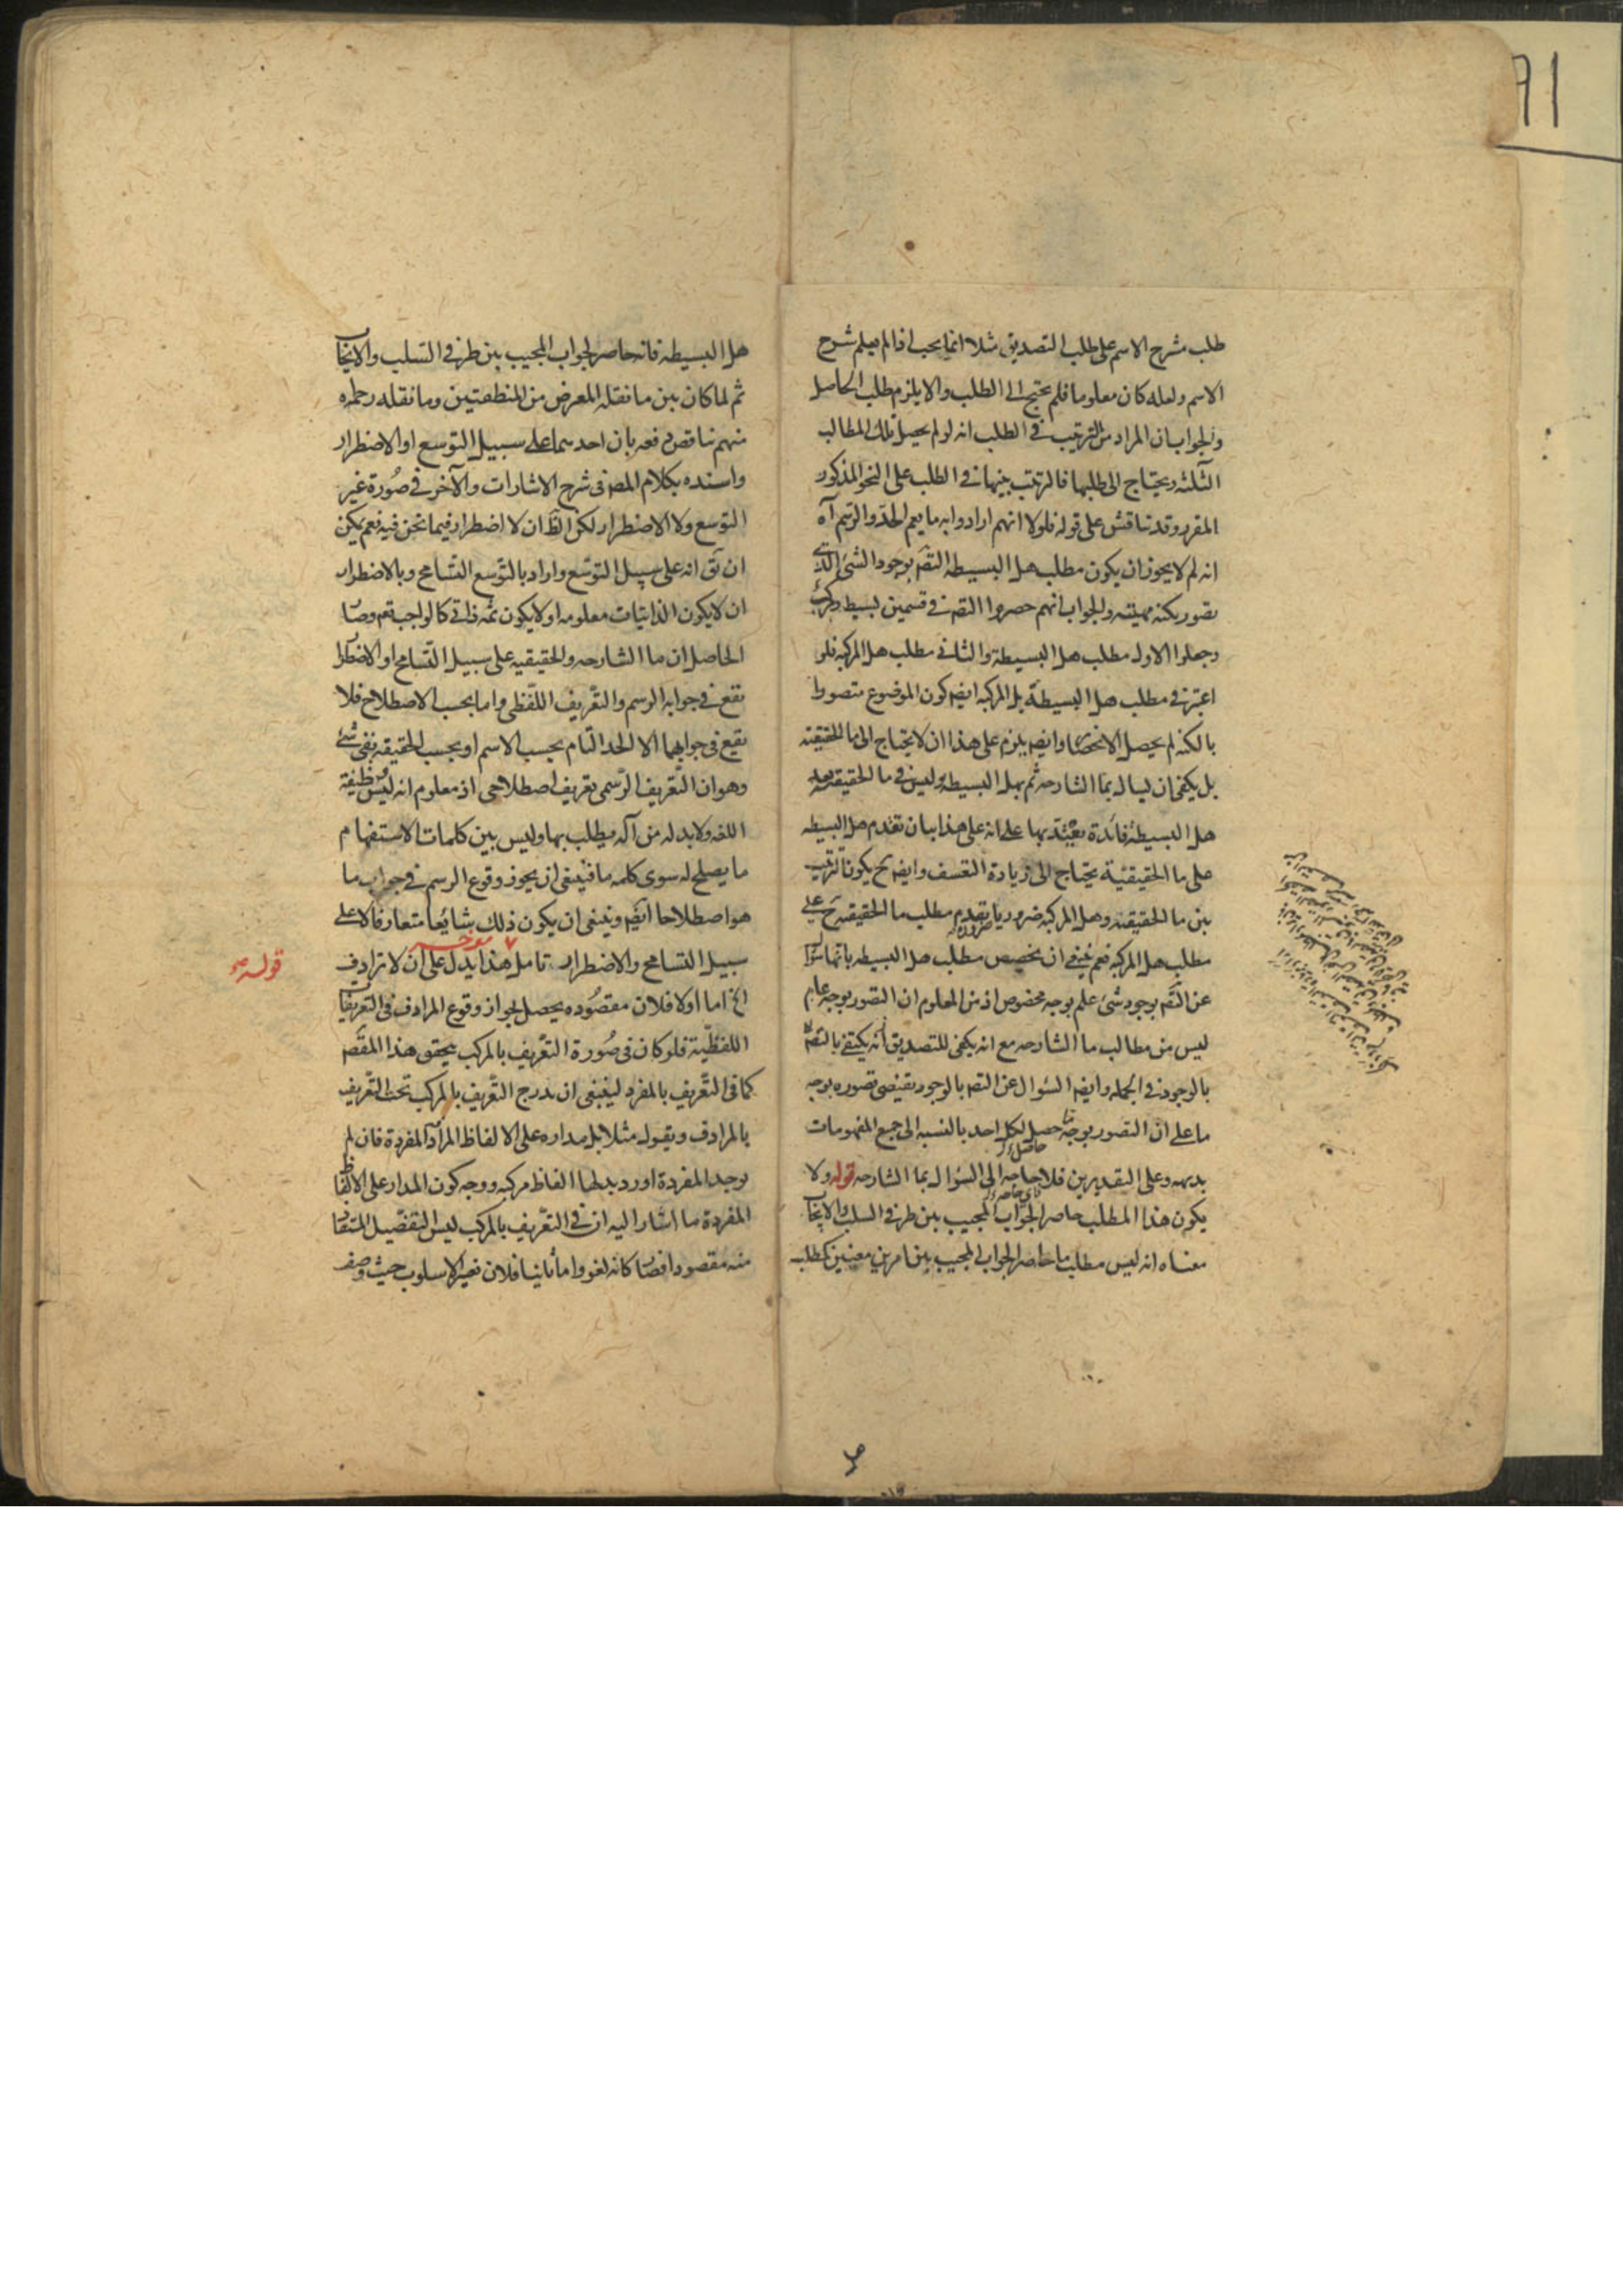 طلب شرح الاسم على طلب التصديق مثلا انما يجب اذا لم يعلم شرح
الاسم ولعله كان معلوما فلم يحتج الى الطلب والا يلزم طلب الحاصل
والجواب ان المراد من الترتيب في الطلب انه لو لم يحصل تلك المطالب
الثلثه ويحتاج الى طلبها فالترتيب بينها في الطلب على النحو المذكور
المقرر وقد تناقش على قوله فلولا انهم ارادوا به ما يعم الحد والرسم آه
انه لم لا يجوز ان يكون مطلب هل البسيطه التصـ بوجود الشئ الذي
تصور بكنه مهيته والجواب انهم حصروا التصـ في قسمين بسيط ومركب
وجعلوا الاول مطلب هل البسيطة والثاني مطلب هل المركبه فلو
اعتبر في مطلب هل البسيطة بل المركبه ايضـ كون الموضوع متصورا
بالكنه لم يحصل الانحصار وايضـ يلزم على هذا ان لا يحتاج الى ما الحقيقيه
بل يكفى ان ليسال بما الشارحه ثم بهل البسيطه وليس في ما الحقيقيه بعد
هل البسيطة فائدة يعتد بها على انه على هذا بيان تقدم هل البسيطه
على ما الحقيقيّة يحتاج الى زيادة التعسف وايضـ ح يكون الترتيب
بين ما الحقيقيه وهل المركبه ضروريا بتقديم مطلب ما الحقيقيه ح على
مطلب هل المركبه فعم ينبغي ان تخصيص مطلب هل البسيطه بانها سؤال
عن التصـ بوجود شئ علم بوجه مخصوص اذ من المعلوم ان التصور بوجه عام
ليس من مطالب ما الشارحه مع انه يكفى للتصديق انه يكتفى بالتصـ
بالوجود في الجمله وايضـ السؤال عن التصـ بالوجود تقتضى تصوره بوجه
ما على ان التصور بوجه ما حصل لكل احد بالنسبه الى جميع المفهومات
حاصل
بديهه وعلى التقديرين فلا حاجه الى السؤال بما الشارحه قوله ولا
يكون هذا المطلب حاصر الجواب المجيب بين طرفي السلب والايجاب
معناه انه ليس مطلب ما حاصر الجواب المجيب بين امرين معينين كمطلب
هل البسيطه فانه حاصر لجواب المجيب بين طرفي السّلب والايجاب
ثم لما كان بين ما نقله المعرض من المنطقيين وما نقله رحمه
منهم تناقض دفعه بان احدهما على سبيل التوسع او الاضطرار
واسنده بكلام المصـ فى شرح الاشارات والآخر في صورة غير
التوسع ولا الاضطرار لكن الظ ان لا اضطرار فيما نحن فيه نعم يمكن
ان يق انه على سبيل التوسّع واراد بالتوسع التسامح وبالاضطرار
ان لا يكون الذاتيات معلومه او لا يكون ثمه ذاتي كالواجب تعـ وصار
الحاصل ان ما الشارحه والحقيقيه على سبيل التسامح او الاضطرار
تقع في جوابه الرسم والتّعريف اللّفظي واما بحسب الاصطلاح فلا
تقع فى جوابهما الا الحد التام بحسب الاسم او بحسب الحقيقه بقى شئ
وهو ان التّعريف الرّسمى تعريف اصطلاحى اذ معلوم انه ليس وظيفة
اللغه ولابد له من آله يطلب بها وليس بين كلمات الاستفهام
ما يصلح له سوى كلمه ما فينبغى ان يجوز وقوع الرسم في جواب ما
هو اصطلاحا ايضـ وينبغى ان يكون ذلك شايعا متعارفا لا على
سبيل التسامح والاضطرار تامل هذا يدل على ان لا ترادف
قوله
الخ اما اولا فلان مقصُوده يحصل لجواز وقوع المرادف في التعريفات
اللفظّية فلو كان فى صُورة التّعريف بالمركب يتحقق هذا المقصـ
كما في التّعريف بالمفرد لينبغى ان يدرج التّعريف بالمركب تحت التّعريف
بالمرادف ويقول مثلا بل مداره على الالفاظ المرادفة المفردة فان لم
توجد المفردة اورد بدلها الفاظ مركبه ووجه كون المدار على الالفاظ
المفردة ما اشار اليه ان في التعّريف بالمركب ليس التفصّيل المستفاد
منه مقصودا فصار كانه لغو واما ثانيا فلان تغير الاسلوب حيث وصف